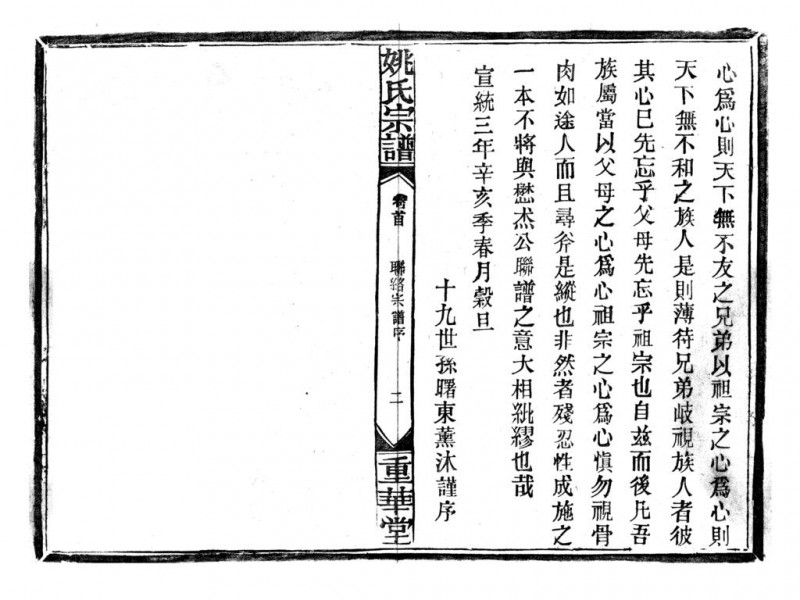 心爲心則天下無不友之兄弟以祖宗之心爲心則
天下無不和之族人是則薄待兄弟岐視族人者彼
其心已先忘乎父母先忘乎祖宗也自兹而後凡吾
族屬當以父母之心爲心祖宗之心爲心愼勿視骨
肉如途人而且尋斧是縱也非然者殘忍性成施之
一本不將與懋杰公聯譜之意大相紕繆也哉
宣統三年辛亥季春月穀旦
十九世孫曙東薰沐謹序
姚氏宗譜
卷首
聯絡宗譜序
二
重華堂